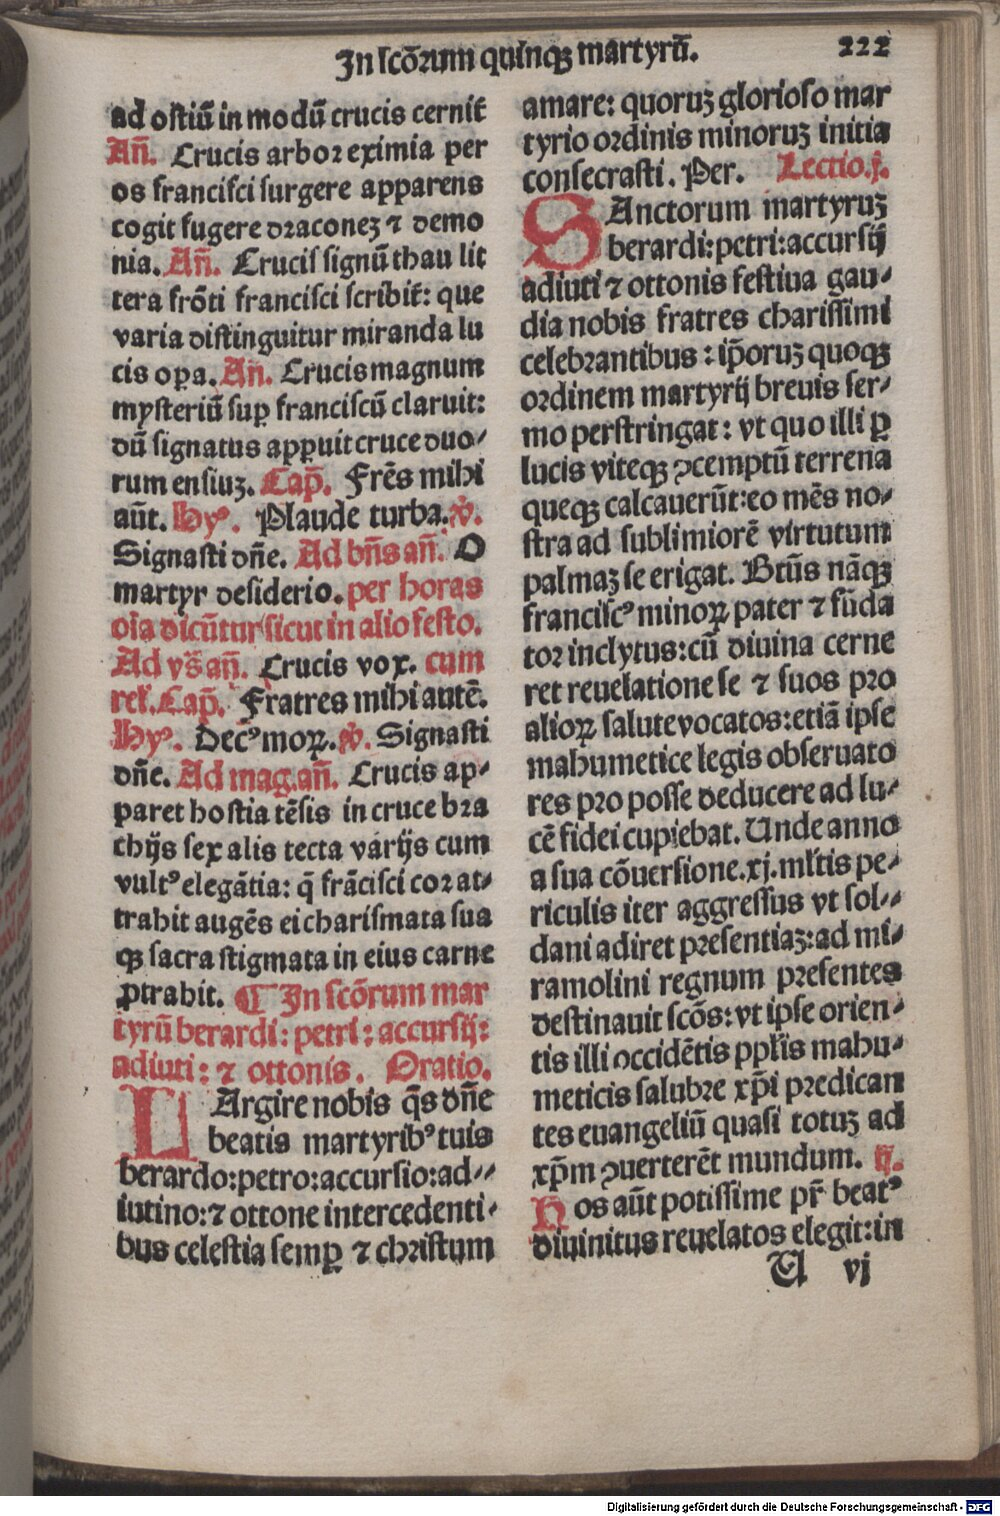 In scõrum quinqꝫ martyrũ.
222
ad ostiũ in modũ crucis cernit̃
Añ. Crucis arbor eximia per
os francisci surgere apparens
cogit fugere draconeꝫ ⁊ demo
nia. Añ. Crucis signũ thau lit
tera frõti francisci scribit̃: que
varia distinguitur miranda lu
cis oꝑa. Añ. Crucis magnum
mysteriũ suꝑ franciscũ claruit:
dũ signatus apꝑuit cruce duo⸗
rum ensiuꝫ. Cap̃. Frẽs mihi
aũt. Hyꝰ. Plaude turba. ꝟ.
Signasti dñe. Ad bñs añ. O
martyr desiderio. per horas
oĩa dicũtur sicut in alio festo.
Ad vs̃ añ. Crucis vox. cum
rel̃. Cap̃. Fratres mihi autẽ.
Hyꝰ. Decꝰ moꝝ. ꝟ. Signasti
dñe. Ad mag. añ. Crucis ap⸗
paret hostia tẽsis in cruce bra
chijs sex alis tecta varijs cum
vultꝰ elegãtia: q̃ frãcisci cor at⸗
trahit augẽs ei charismata sua
qꝫ sacra stigmata in eius carne
ꝓtrahit. ¶ In scõrum mar
tyrũ berardi: petri: accursij:
adiuti: ⁊ ottonis. Oratio.
LArgire nobis q̃s dñe
beatis martyribꝰ tuis
berardo: petro: accursio: ad⸗
iutino: ⁊ ottone intercedenti⸗
bus celestia semꝑ ⁊ christum
amare: quoruꝫ glorioso mar
tyrio ordinis minoruꝫ initia
consecrasti. Per. Lectio .j.
SAnctorum martyruꝫ
berardi: petri: accursij
adiuti ⁊ ottonis festiua gau⸗
dia nobis fratres charissimi
celebrantibus: ip̃oruꝫ quoqꝫ
ordinem martyrij breuis ser⸗
mo perstringat: vt quo illi ꝑ
lucis viteqꝫ ꝯcemptũ terrena
queqꝫ calcauerũt: eo mẽs no⸗
stra ad sublimiorẽ virtutum
palmaꝫ se erigat. Btũs nãqꝫ
franciscꝰ minoꝝ pater ⁊ fũda
tor inclytus: cũ diuina cerne
ret reuelatione se ⁊ suos pro
alioꝝ salute vocatos: etiã ipse
mahumetice legis obseruato
res pro posse deducere ad lu⸗
cẽ fidei cupiebat. Unde anno
a sua cõuersione .xj. ml̃tis pe⸗
riculis iter aggressus vt sol⸗
dani adiret presentiaꝫ: ad mi⸗
ramolini regnum presentes
destinauit scõs: vt ipse orien⸗
tis illi occidẽtis ppl̃is mahu⸗
meticis salubre xp̃i predican
tes euangeliũ quasi totuꝫ ad
xp̃m ꝯuerterẽt mundum. ij.
Hos aũt potissime pr̃ beatꝰ
diuinitus reuelatos elegit: in
U vj
Digitalisierung gefördert durch die Deutsche Forschungsgemeinschaft - DFG